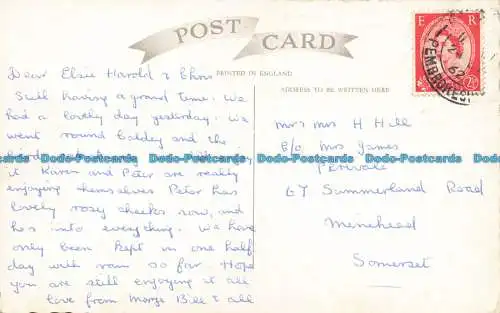 POST CARD
PRINTED IN ENGLAND
ADDRESS TO BE WRITTEN HERE
E R
PEMBROKESH
Dear Elsie Harold & Chris
Still having a grand time. We
had a lovely day yesterday. We
went round Caldey and the
it Karen and Peter are really
enjoying themselves Peter has
lovely rosy cheeks now, and
has into everything. We have
only been kept in one half
day with rain so far Hope
you are still enjoying it all
love from Marge Bill & all
Mr & Mrs H Hill
C/o Mrs James
67 Summerland Road
Minehead
Somerset
Dodo-Postcards Dodo-Postcards Dodo-Postcards Dodo-Postcards